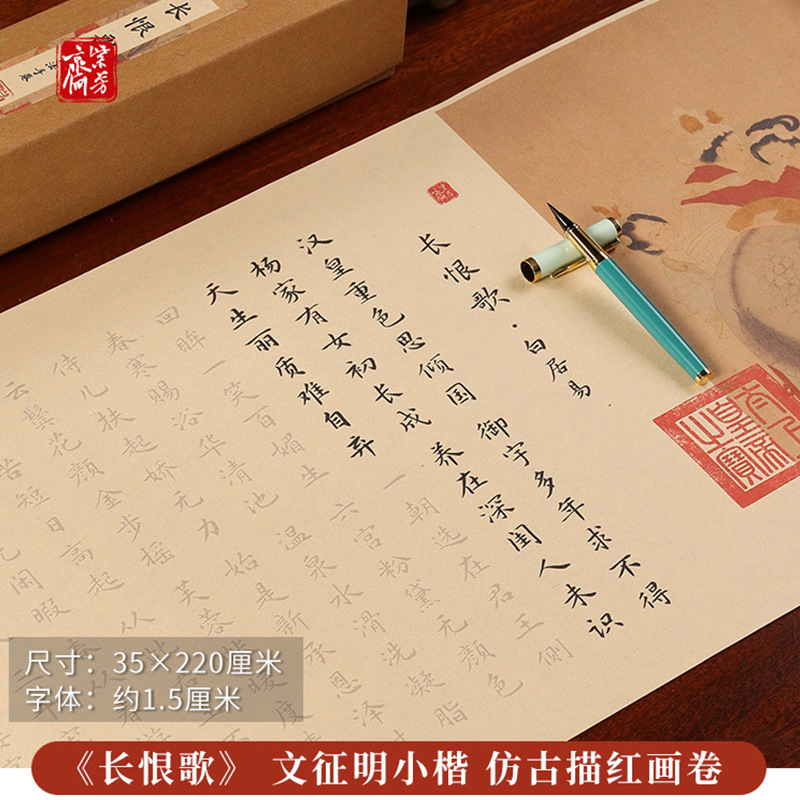 长恨
长恨歌·白居易
汉皇重色思倾国 御宇多年求不得
杨家有女初长成 养在深闺人未识
天生丽质难自弃 一朝选在君王侧
回眸一笑百媚生 六宫粉黛无颜色
春寒赐浴华清池 温泉水滑洗凝脂
侍儿扶起娇无力 始是新承恩泽
云鬓花颜金步摇 芙蓉 暖度
苦短日高起 从此
闲暇
皇帝
之寶
尺寸：35×220厘米
字体：约1.5厘米
《长恨歌》 文征明小楷 仿古描红画卷